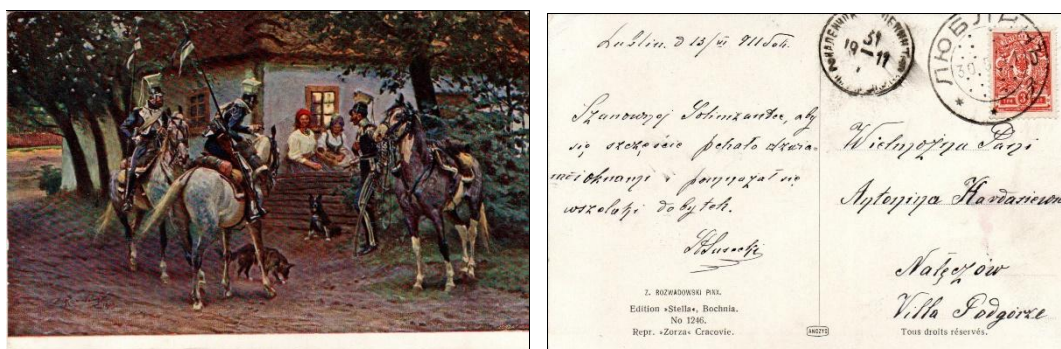 Lublin. d 13/VI 911 rok.
Szanownej Solenizantce, aby
się szczęście pchało drzwia-
mi i oknami i pomnażał się
wszelaki dobytek.
Z. ROZWADOWSKI PINX.
Edition »Stella«, Bochnia.
No 1246.
Repr. »Zorza« Cracovie.
ANCZYC
31
19 11
ЛЮБЛИНЪ
Wielmożna Pani
Antonina
Nałęczów
Villa Podgórze
Tous droits réservés.